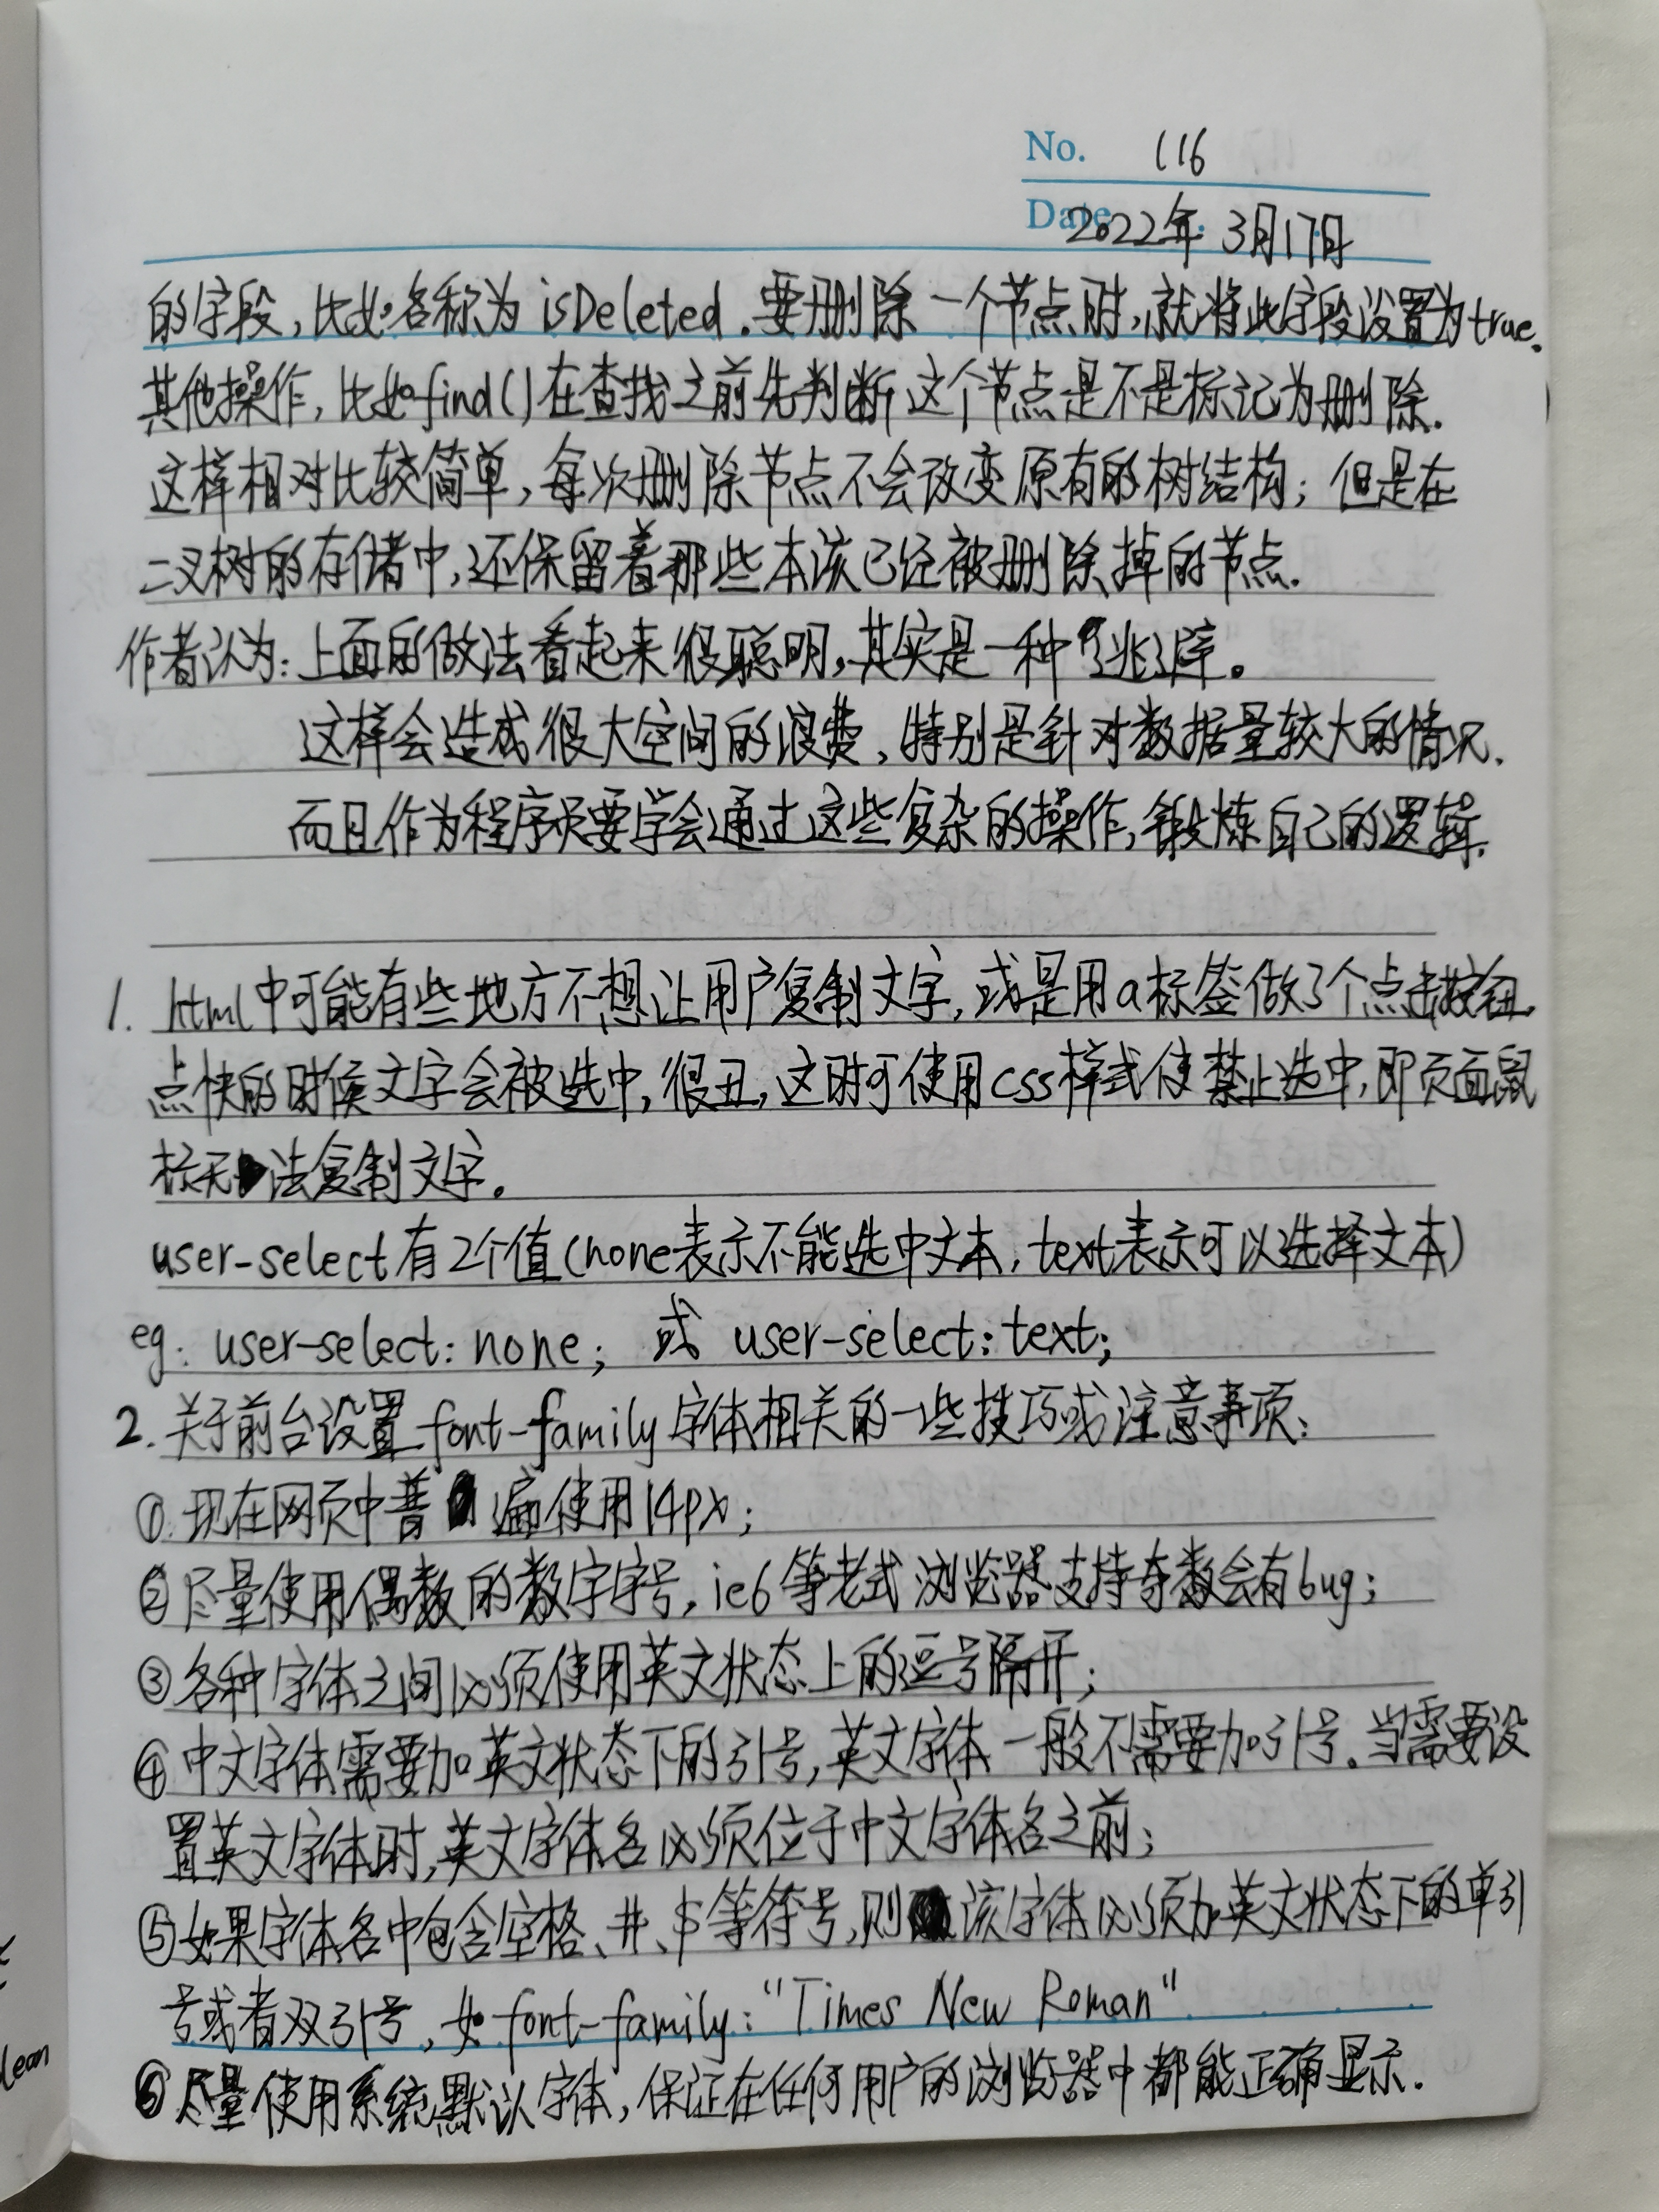 No. 116
Date 2022年 3月17日
的字段,比如名称为isDeleted.要删除一个节点时,就将此字段设置为true.
其他操作,比如find()在查找之前先判断这个节点是不是标记为删除.
这样相对比较简单,每次删除节点不会改变原有的树结构;但是在
二叉树的存储中,还保留着那些本该已经被删除掉的节点.
作者认为:上面的做法看起来很聪明,其实是一种逃避。
这样会造成很大空间的浪费,特别是针对数据量较大的情况.
而且作为程序员要学会通过这些复杂的操作,锻炼自己的逻辑.
1. html中可能有些地方不想让用户复制文字,或是用a标签做了个点击按钮,
点快的时候文字会被选中,很丑,这时可使用css样式使禁止选中,即页面鼠
标无法复制文字。
user-select有2个值(none表示不能选中文本,text表示可以选择文本)
eg: user-select: none; 或 user-select:text;
2.关于前台设置font-family字体相关的一些技巧或注意事项:
①.现在网页中普遍使用14px;
②尽量使用偶数的数字字号,ie6等老式浏览器支持奇数会有bug;
③各种字体之间必须使用英文状态上的逗号隔开;
④中文字体需要加英文状态下的引号,英文字体一般不需要加引号.当需要设
置英文字体时,英文字体名必须位于中文字体名之前;
⑤如果字体名中包含空格、#、$等符号,则该字体必须加英文状态下的单引
号或者双引号,如font-family:"Times New Roman"
⑥尽量使用系统默认字体,保证在任何用户的浏览器中都能正确显示.
lean